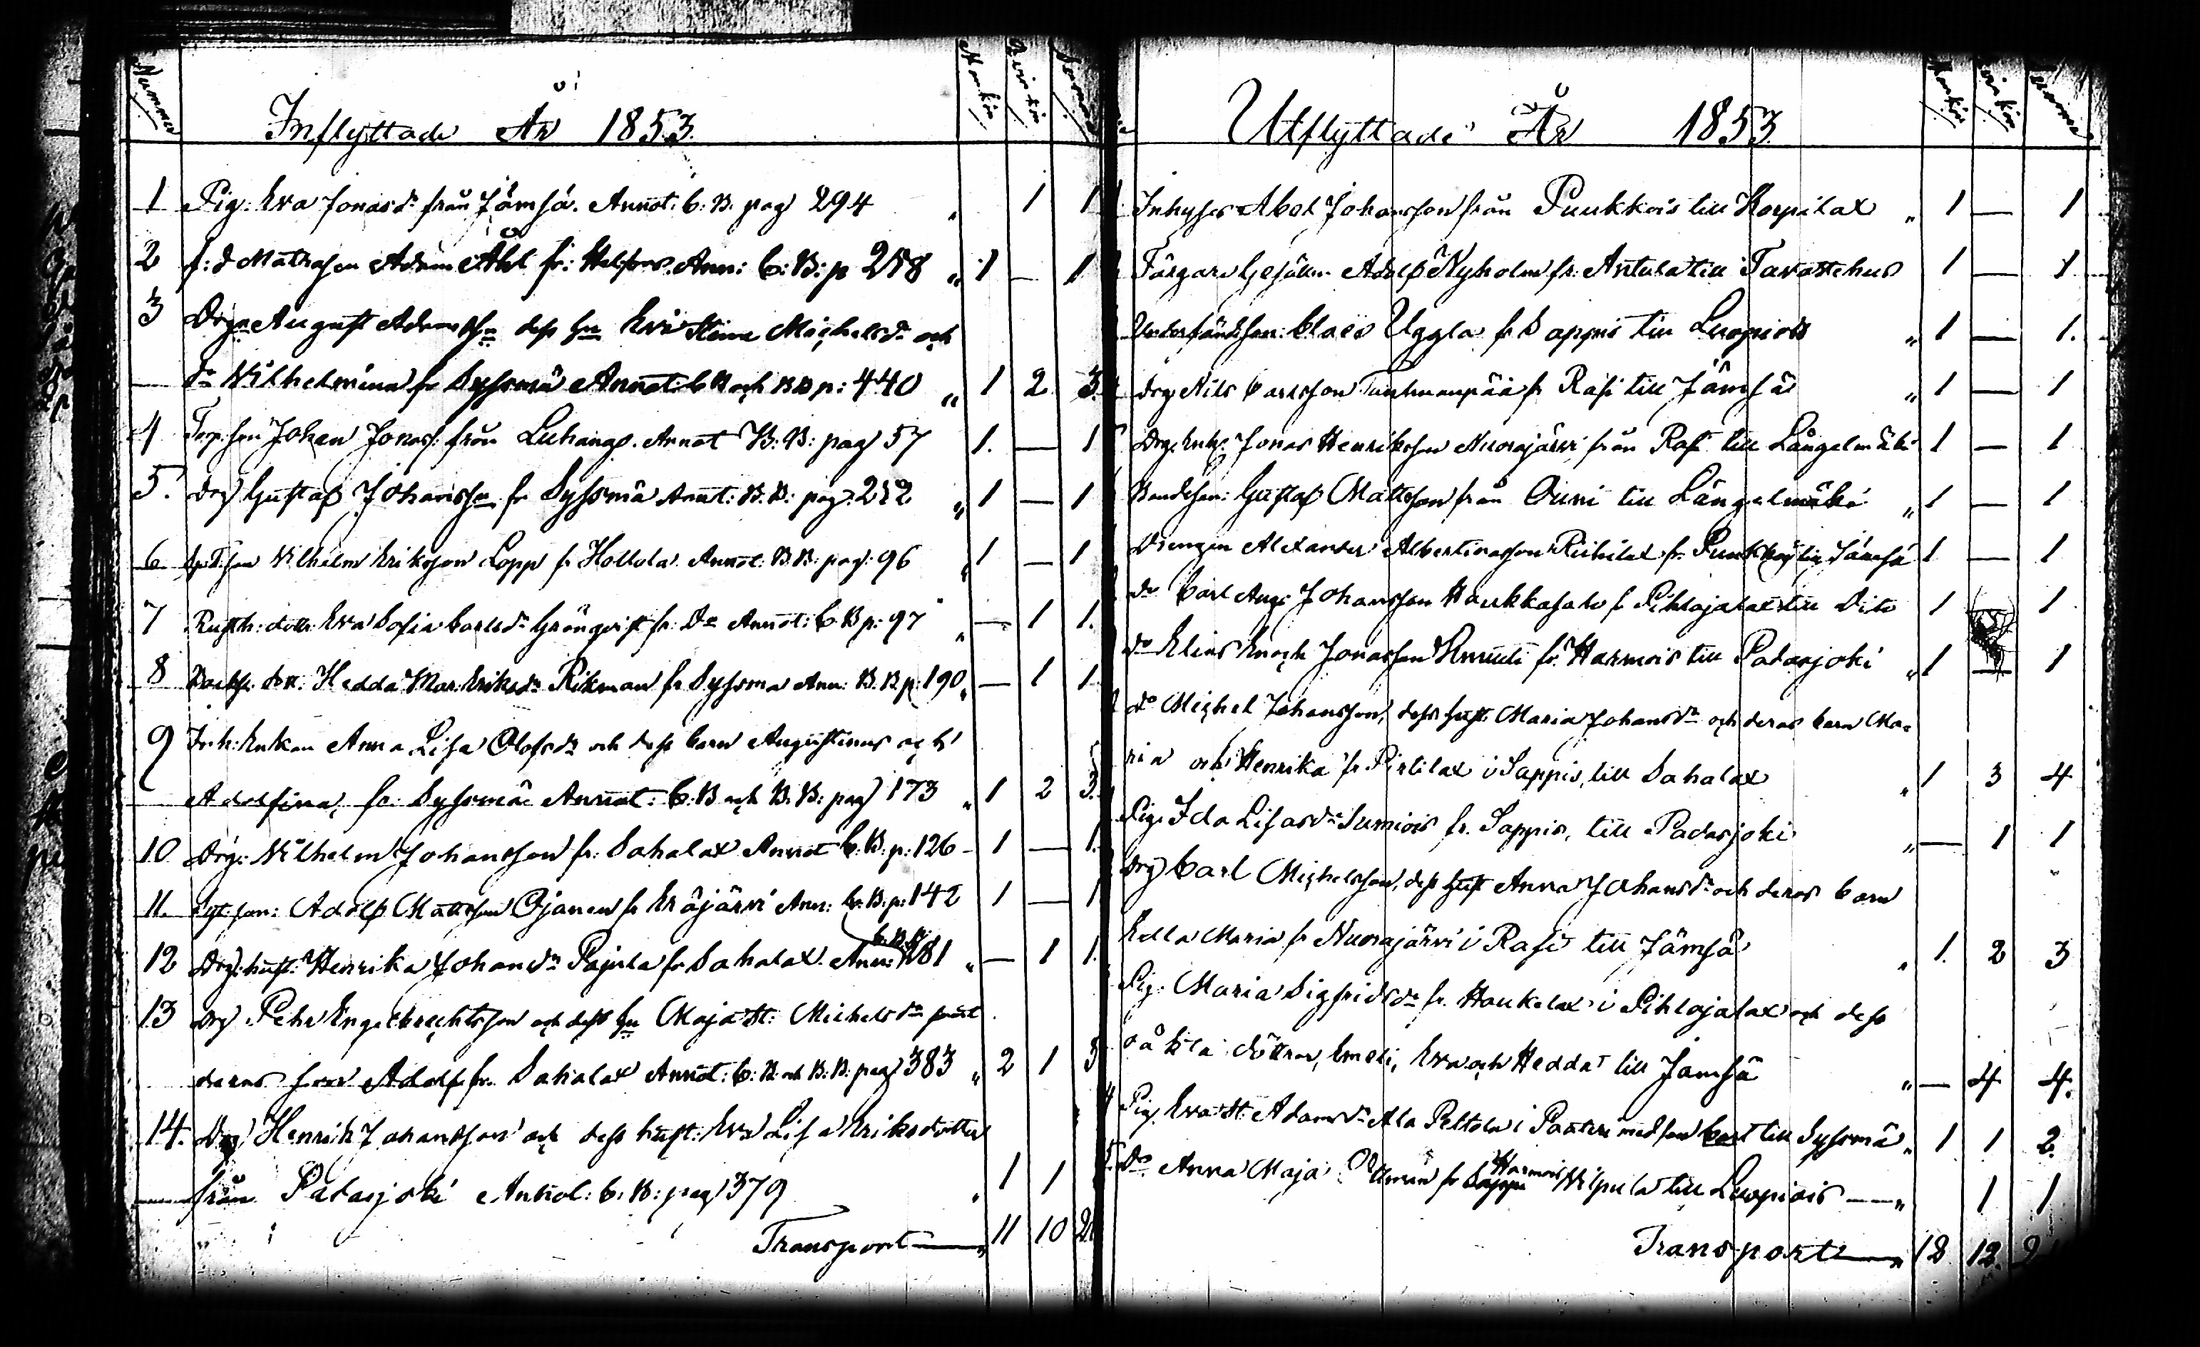 Nummer Mankön Qvinkön Summa
Inflyttade År 1853.
1 Pig: Eva Jonasdr från Jämsä. Annot: C. B. pag 294 " 1 1
2 f: d Matrosen Adam Åhl fr: Helsfors. Ann: C: B: p 258 " 1 — 1
3 Drgn August Adamsson dess hu Eva Stina Michelsdr och
dr Wilhelmina fr Sysmä Annot: C B och BB p: 440 " 1 2 3
4 Torp. son Johan Jonass: från Luhango. Annot B. B: pag 57 1. — 1
5. Drg Gustaf Johansson fr Sysmä Annot: B. B: pag: 212 " 1 — 1
6 son Wilhelm Eriksson Lopp fr Hollola Annot: B. B: pag: 96 " 1 — 1
7 Rusth: dottr Eva Sofia Carlsdr Grönqvist fr: Do Annot: C B p: 97 " — 1 1.
8 dott. Hedda Mar. Eriksdr Rikman fr Sysmä Ann: B. B p. 190 " — 1 1
9 Inh: Enkan Anna Lisa Olofsdr och dess barn Augustinus och
Adolfina, fr: Sysmä Annot: C. B och B. B: pag 173 " 1 2 3.
10 Drg: Wilhelm Johansson fr: Sahalax Annot C. B. p: 126 - 1 — 1.
11. son: Adolf Mattsson Ojanen fr Eräjärvi Ann: C. B: p: 142 1 — 1
12 Drg: hust: Henrika Johansdr Pajula fr Sahalax. Ann: 281 " — 1 1.
13 Drg Pehr Engelbrechtsson och dess hu Maja St: Michelsdr samt
deras son Adolf fr. Sahalax Annot: C: B och B. B: pag 383 " 2 1 3
14. Drg Henrik Johansson och dess hust: Eva Lisa Eriksdotter
från Padasjoki Annot: C: B: pag 379 " 1 1
Transport — 11 10 21
Mankön Qvinkön Summa
Utflyttade År 1853
Inhyses Abel Johansson från Puukkois till Korpilax " 1 — 1
Färgare Gesällen Adolf Nyholm fr: Antula till Tavastehus 1 — 1
Claes Uggla fr Sappis till Luopiois " 1 — 1.
Drg Nils Carlsson fr Rasi till Jämsä " 1 — 1
Drg. Enkl: Jonas Henriksson Nuorajärvi från Rasi till Långelmäki 1 — 1
Bondeson: Gustaf Mattsson från till Långelmäki " 1 — 1
Drengen Alexander Albertinasson fr. Puukkois till Jämsä 1 — 1
do Carl Aug: Johansson Haukkasalo fr Pihlajalax till Dito 1 1
do Elias Enoch Jonasson fr: Harmois till Padasjoki " 1 — 1
do Michel Johansson, dess hust. Maria Johansdr och deras barn Ma=
ria och Henrika fr Pirtilax i Sappis, till Sahalax " 1 3 4
Pig. Ida Lisasdr fr. Sappis, till Padasjoki " — 1 1
Drg Carl Michelsson, dess hust Anna Johansdr och deras barn
Edla Maria fr Nuorajärvi i Rasi till Jämsä " 1. 2 3
Pig: Maria Sigfridsdr fr. Haukilax i Pihlajalax och dess
oäkta döttrar, Emeli, Eva och Hedda till Jämsä " — 4 4.
Pig. Eva St: Adamsdr Ala Peltola i med son Carl till Sysmä " 1 1 2
Do Anna Maja fr Harmois till Luopiois — " 1 1
Transport — " 12 12.